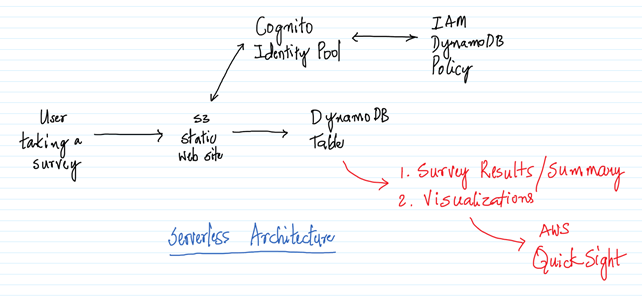 Cognito
Identity Pool
IAM
DynamoDB
Policy
User
taking a
survey
S3
static
Web site
DynamoDB
Table
1. Survey Results/Summary
2. Visualizations
AWS
QuickSight
Serverless Architecture